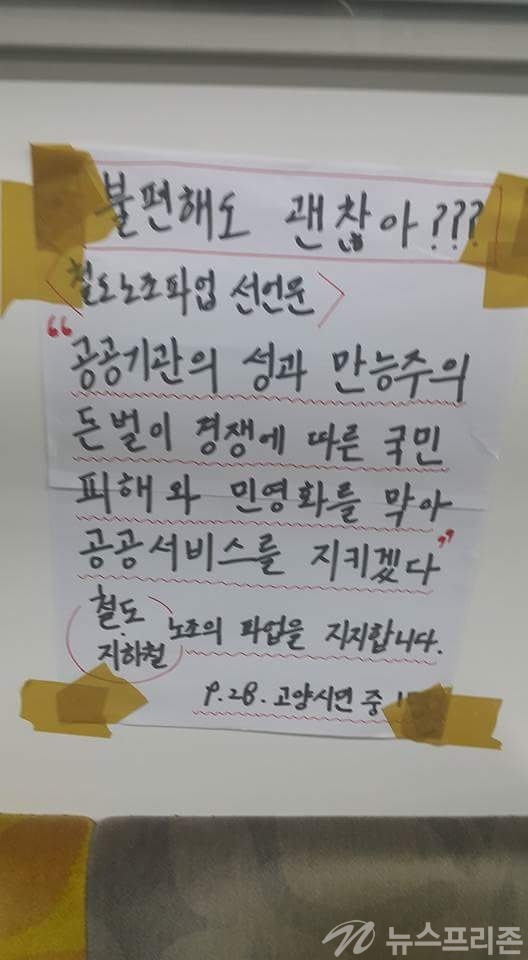 불편해도 괜찮아???
철도노조파업 선언문
"공공기관의 성과 만능주의
돈벌이 경쟁에 따른 국민
피해와 민영화를 막아
공공서비스를 지키겠다"
철도 지하철 노조의 파업을 지지합니다.
9.28. 고양시민 중
뉴스프리존